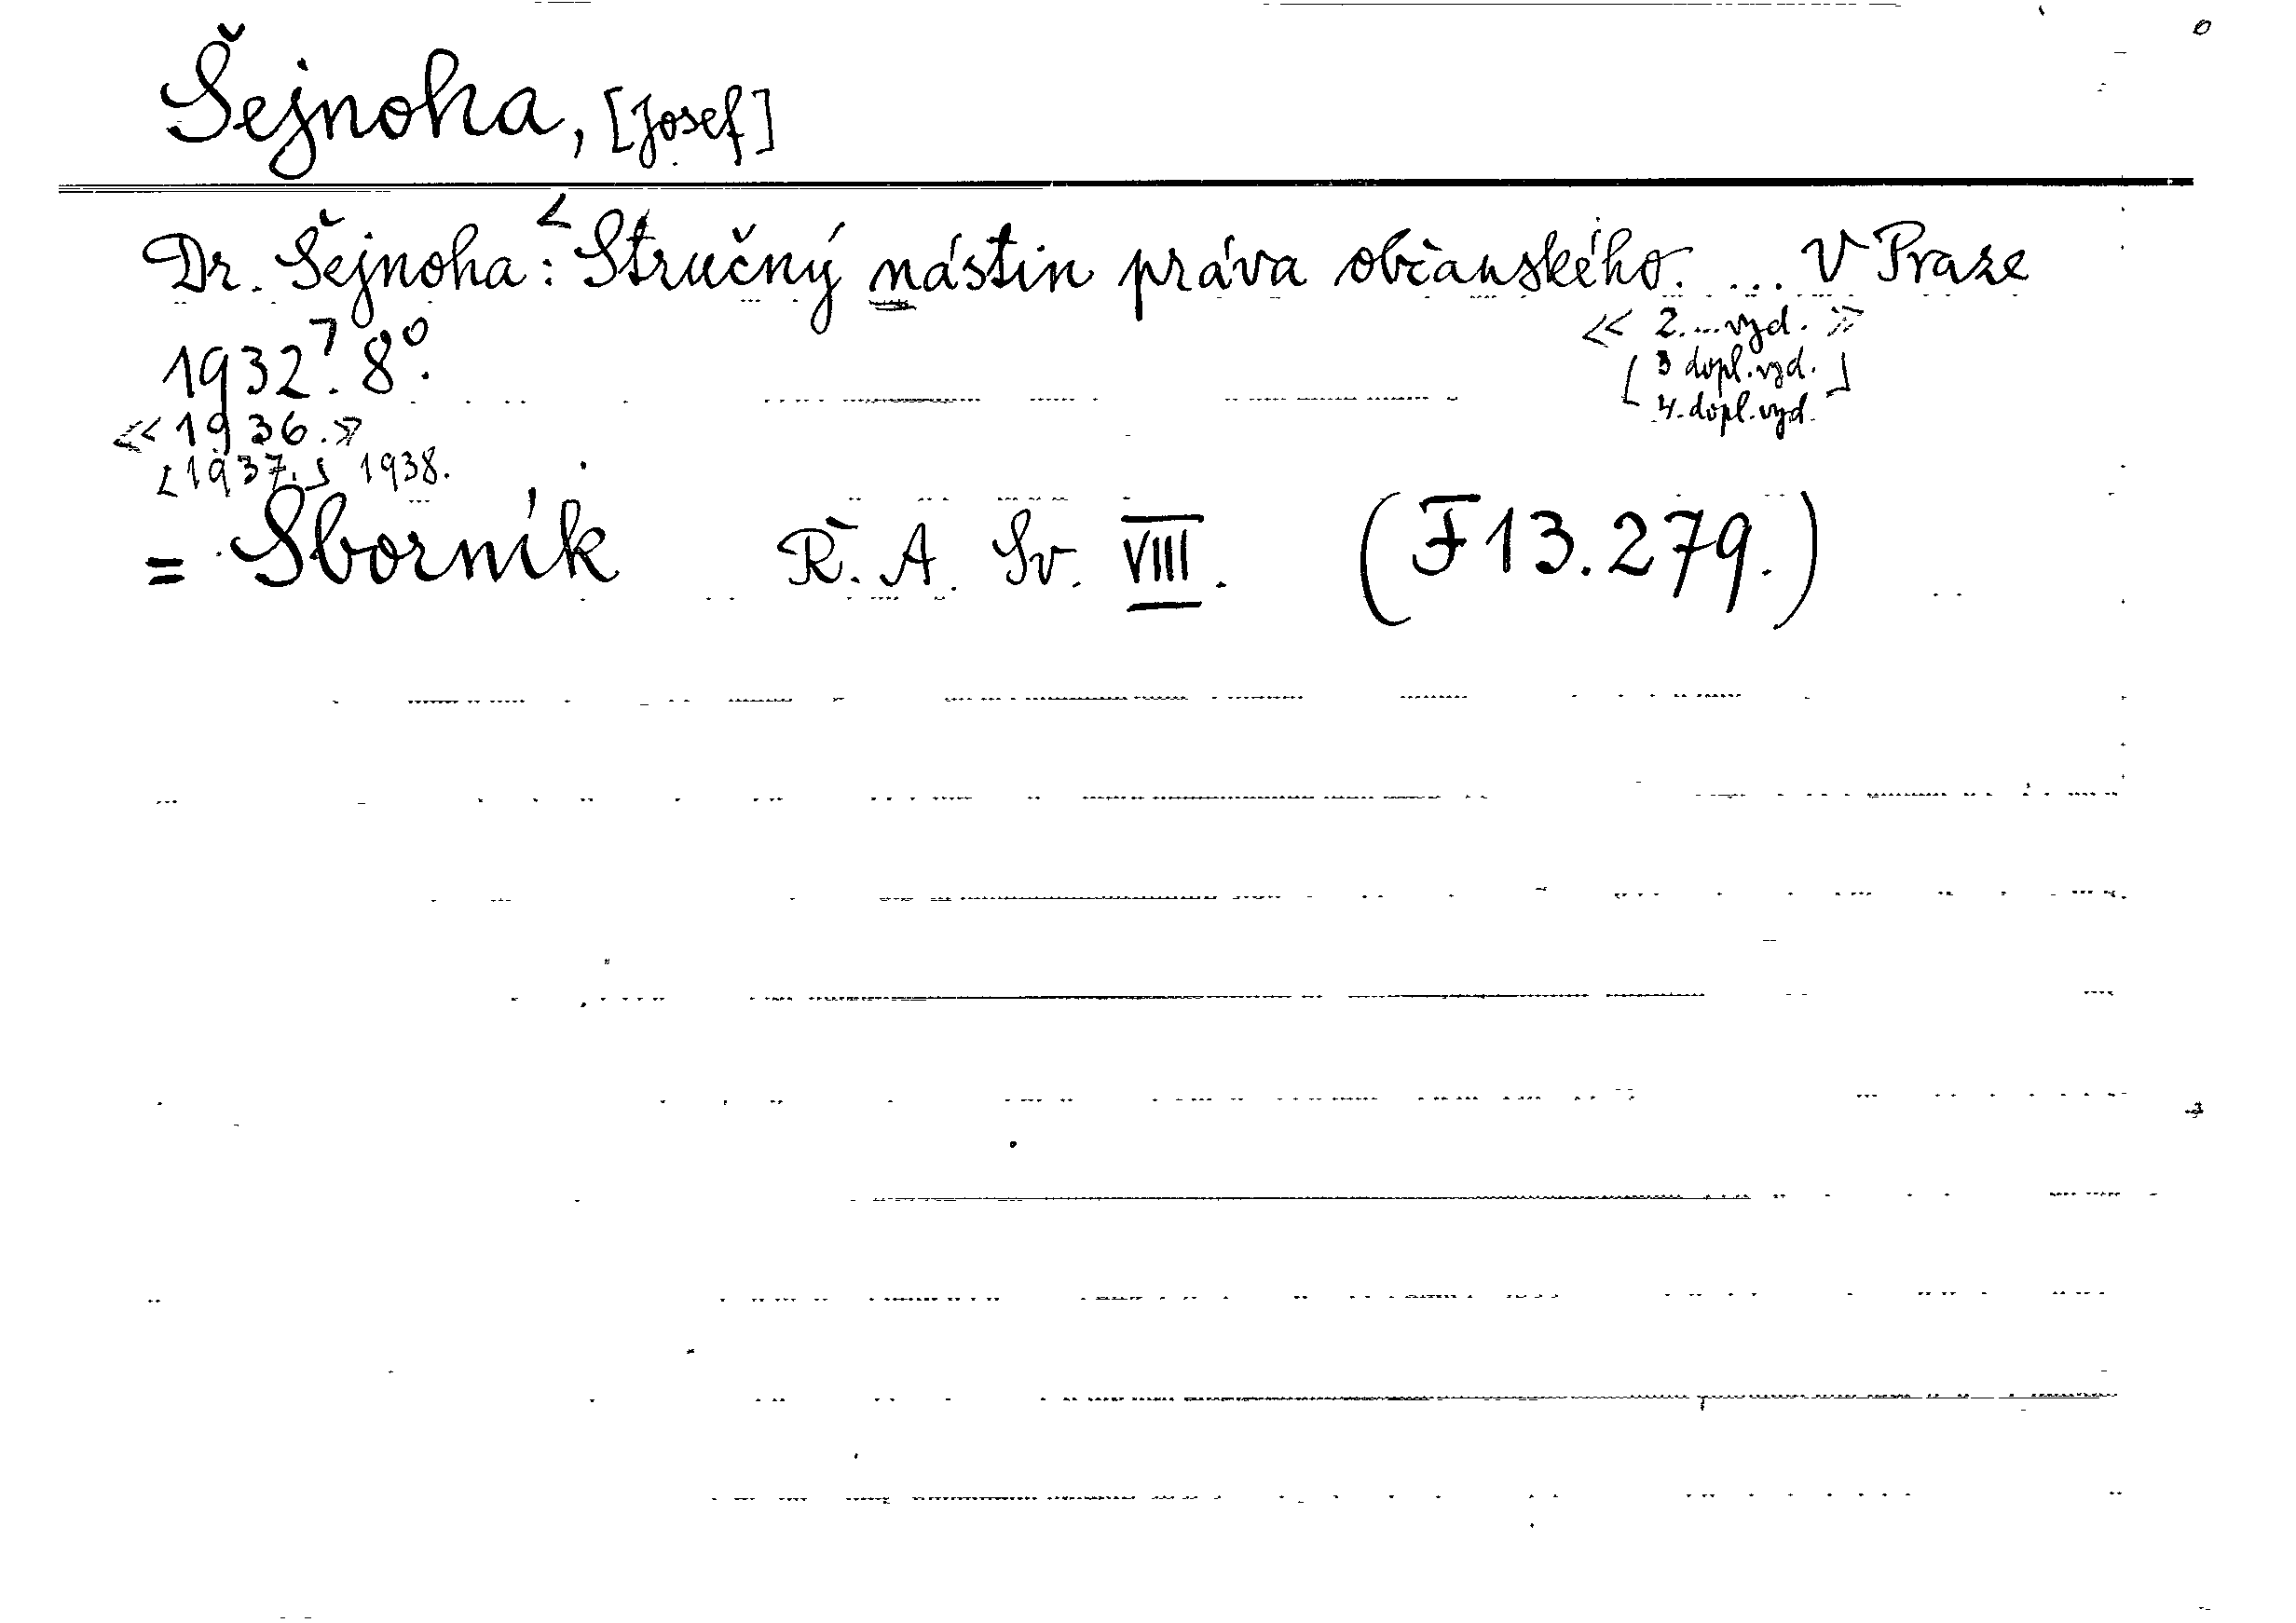 Šejnoha, [Josef]
Dr. Šejnoha: Stručný nástin práva občanského. ... V Praze
<< 2. ... vyd. >>
1932. 8°.
[ 3 dopl. vyd. ]
4. dopl. vyd.
<< 1936. >>
[1937.] 1938.
= Sborník Ř. A. Sv. VIII. (F 13.279.)